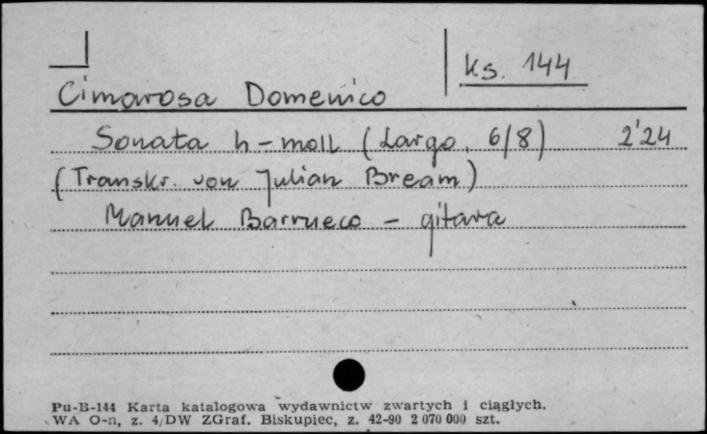 Ks. 144
Cimarosa Domenico
Sonata h-moll (Largo, 6/8) 2'24
(Transkr. von Julian Bream)
Manuel Barrueco - gitara
Pu-B-144 Karta katalogowa wydawnictw zwartych i ciągłych.
WA O-n, z. 4/DW ZGraf. Biskupiec, z. 42-90 2 070 000 szt.